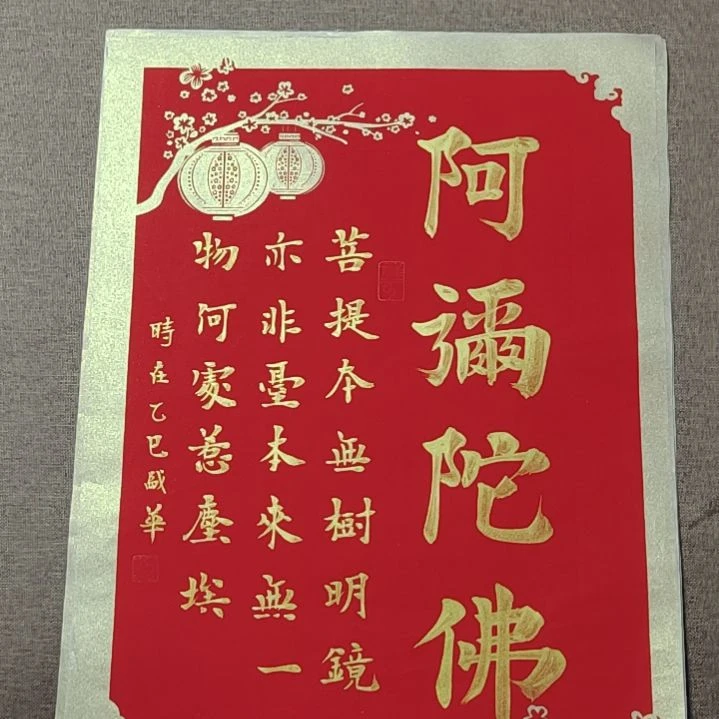 阿彌陀佛
菩提本無樹明鏡
亦非臺本來無一
物何處惹塵埃
時在乙巳